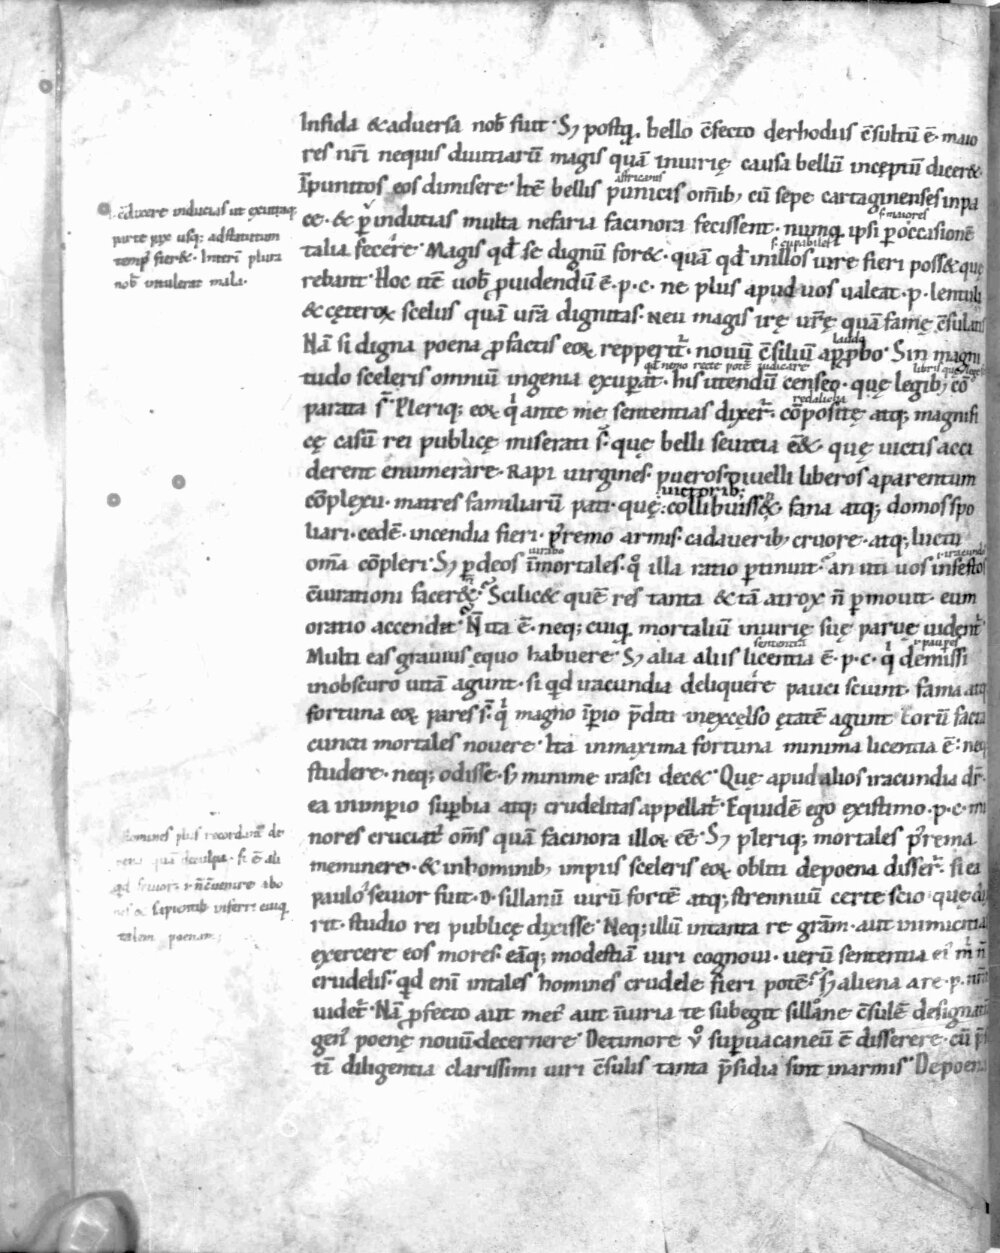 Infida & adversa nob̄ fuit. Sȝ postq̄. bello c̄fecto derhodiis c̄sultū ē. maio
res nr̄i nequis divitiarū magis quā iniurię causa bellū inceptū dicer&.
Īpunitos eos dimisere. Itē bellis punicis om̄ib; cū sepe cartaginenses inpa
affricanis
ce. & p̄ indutias multa nefaria facinora fecissent. numq̄ ipsi p occasionē
s. maiores
talia fecere. Magis qd̄ se dignū for&. quā qd̄ inillos iure fieri poss& quę
rebant. Hoc itē uob̄ p̄uidendū ē. p. c. ne plus apud uos ualeat. p. lentuli
& cęteroꝝ scelus quā ur̄a dignitas. Neu magis irę ur̄ę quā famę c̄sulatis
Nā si digna poena p factis eoꝝ repperit̄. nouū c̄siliū app̄bo. Sin magni
laudo
tudo sceleris omniū ingenia exupat. his utendū censeo. quę legib; cō
parata s̄. Pleriq; eoꝝ q̄ ante me sententias dixer̄. cōpositę atq; magnifi
cę casū rei publicę miserati s̄. quę belli seuitia eē&. quę uictis acci
derent enumerare. Rapi uirgines. pueros. diuelli liberos aparentum
cōplexu. matres familiarū pati. quę uictorib; collibuiss&. fana atq; domos spo
liari. cedē. incendia fieri. p̄remo armis. cadauerib; cruore. atq; luctu
om̄a cōpleri. Sȝ p deos īmortales. q̊ illa ratio ptinuit. an uti uos infestos
c̄iurationi facer&. Scilic& quē res tanta & tā atrox n̄ pmouit. eum
oratio accendit. N̄ ita ē. neq; cuiq̄ mortaliū iniurię suę paruę uident̄
Multi eas grauius ęquo habuere. Sȝ alia aliis licentia ē. p. c. q̄ demissi
inobscuro uitā agunt. si qd iracundia deliquere pauci sciunt. fama atq;
fortuna eoꝝ pares s̄. q̄ magno īperio p̄diti inexcęlso ętatē agunt eorū facta
cuncti mortales nouere. Ita inmaxima fortuna minima licentia ē. neq;
studere. neq; odisse. sȝ minime irasci dec&. Quę apud alios iracundia dr̄.
ea inimperio supbia atq; crudelitas appellat̄. Equidē ego existimo. p. c. om
nores cruciat̄ om̄s quā facinora illoꝝ eē. Sȝ pleriq; mortales p̄rema
meminere. & inhominib; impiis sceleris eoꝝ obliti depoena disser̄. si ea
paulo seuior fuit. D. sillanū uirū fortē atq; strennuū certe scio quę dixe
rit. studio rei publicę dixisse. Neq; illū intanta re grām. aut inimicitias
exercere eos mores. eāq; modestiā uiri cognoui. uerū sententia ei m n̄
crudelis. qd eni intales homines crudele fieri potē. sȝ aliena a re. p. nr̄a
uidet̄. Nā p̄fecto aut met aut iniuria te subegit sillane c̄sulē designatū
gen̄ poenę nouū decernere. Detimore ů supuacaneū ē disserere. cū p̄
tī diligentia clarissimi uiri c̄sulis tanta p̄sidia sint inarmis. Depoena
parte usq; adstatutum
temp̄ fier&. Interi plura
nob̄ intulerat mala.